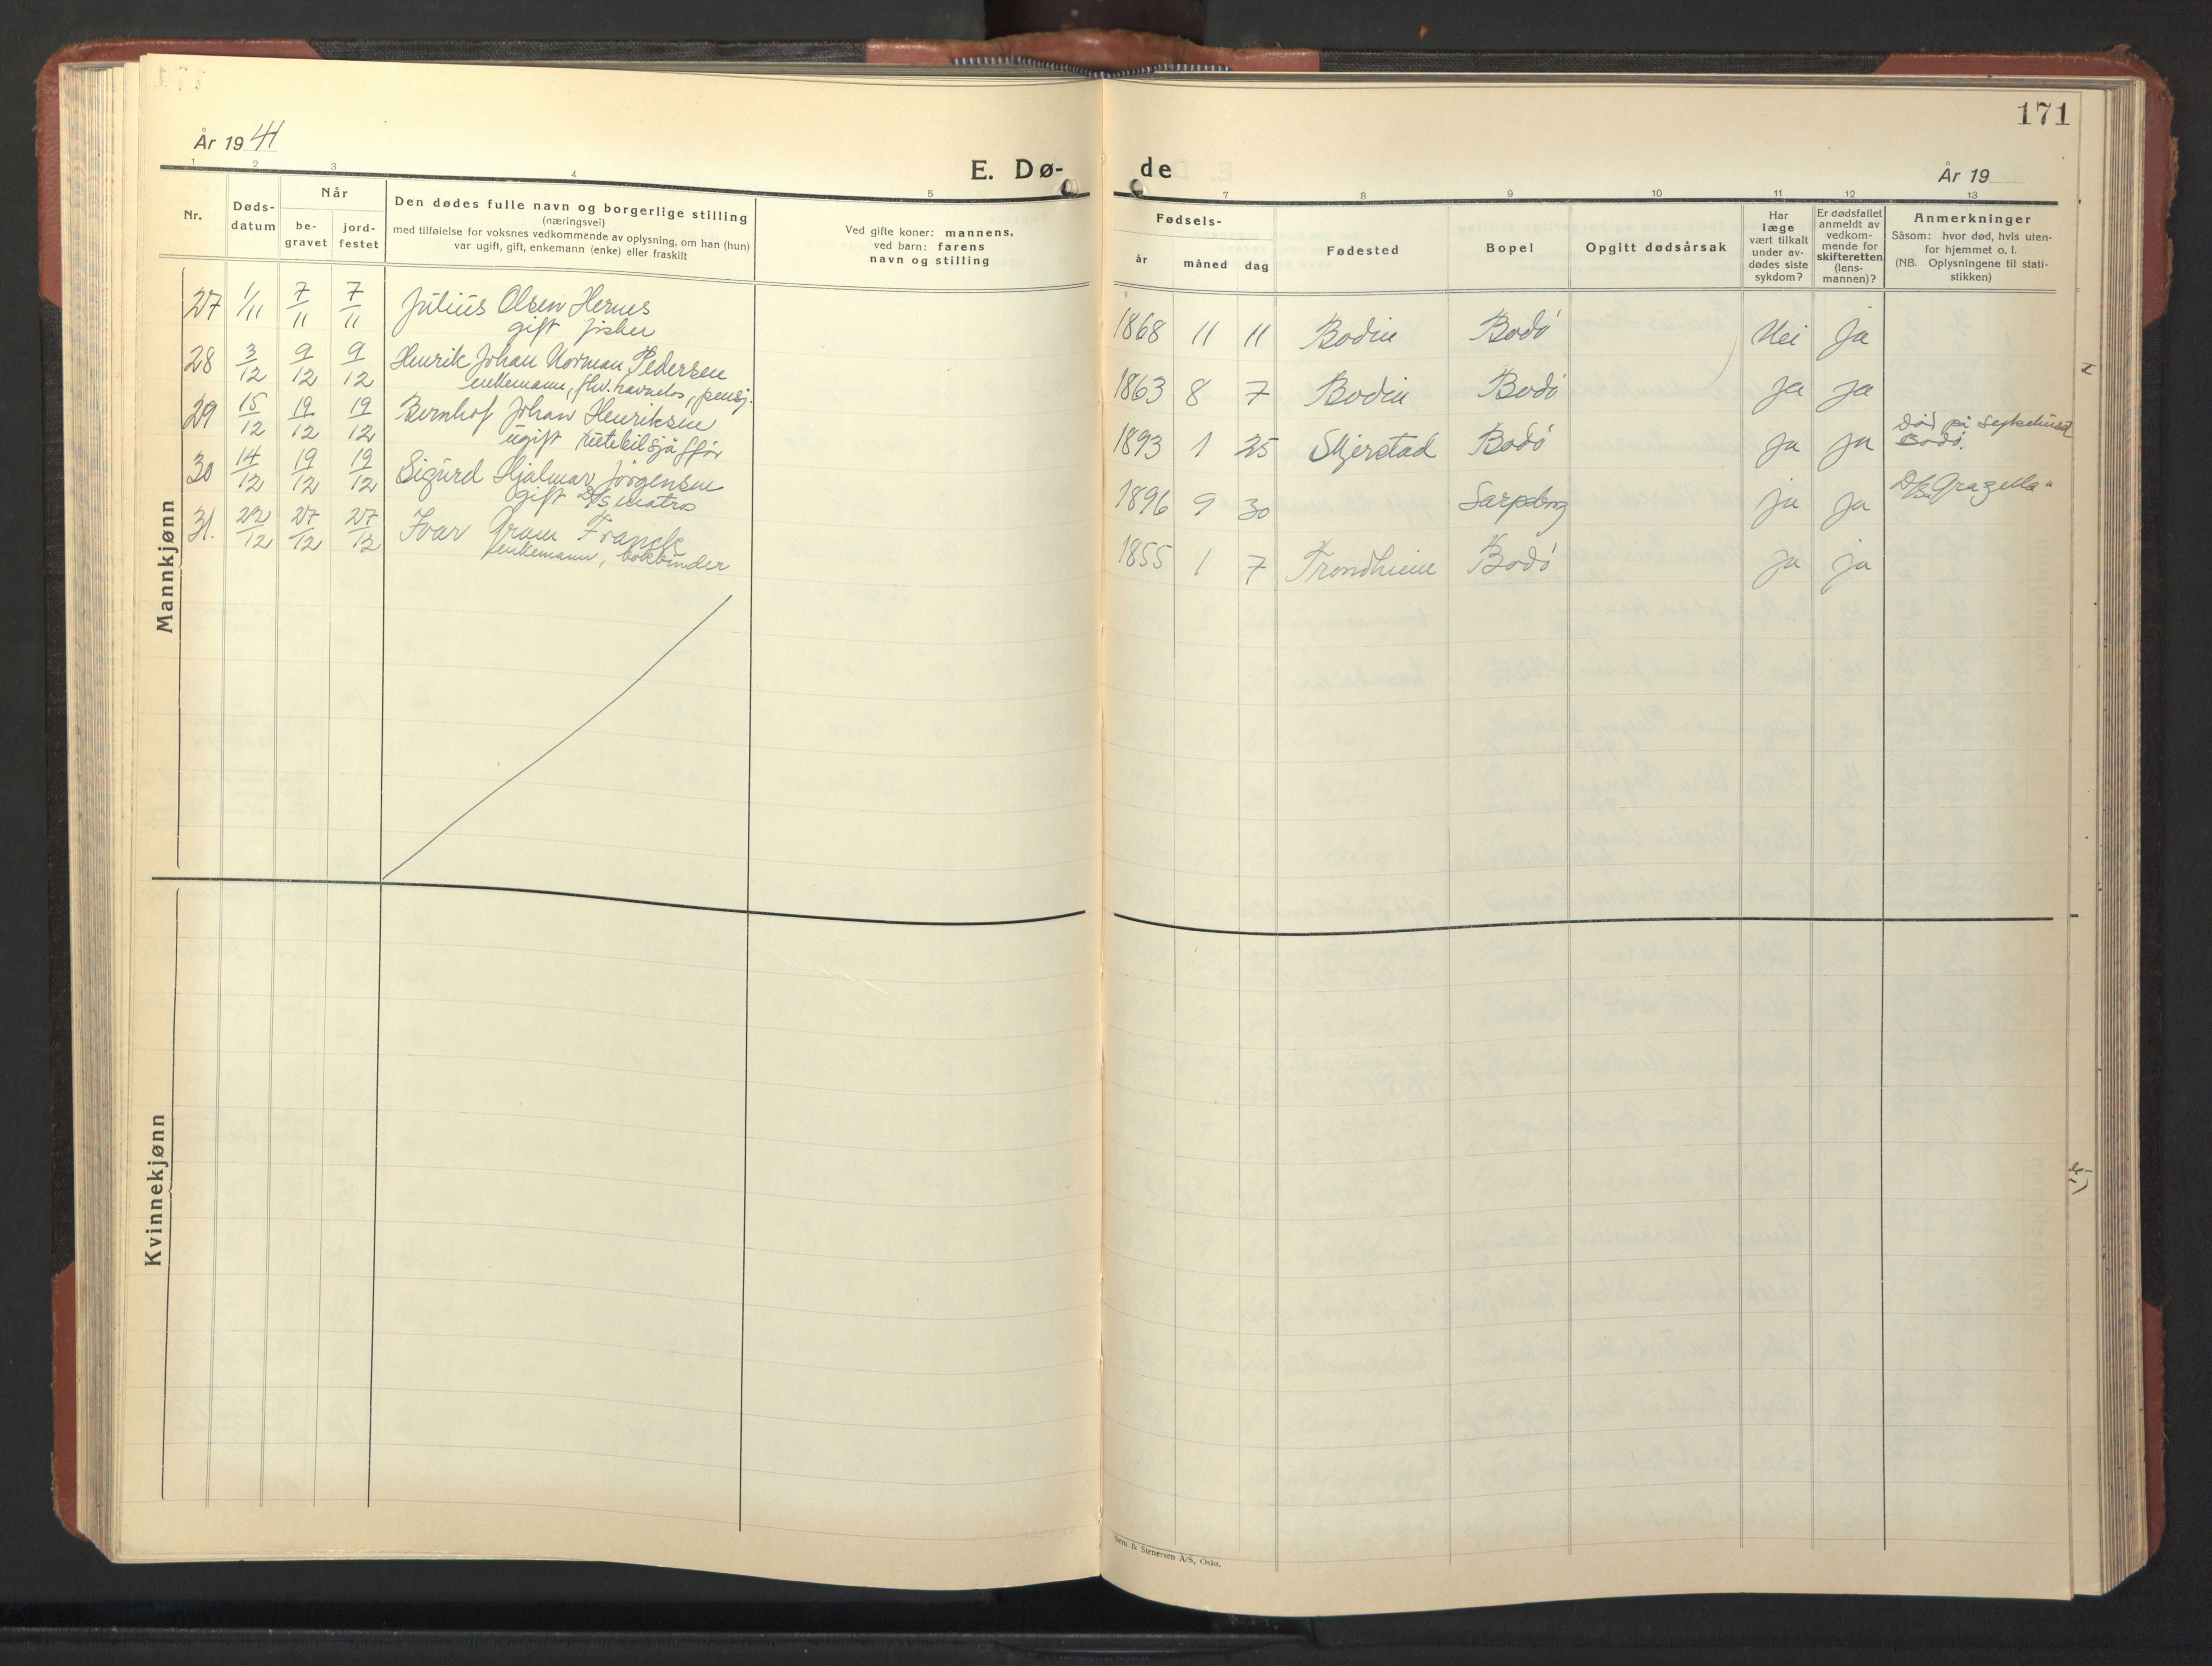 171
År 19 41
E. Dø-
de
År 19
1 2 3 4 5
7 8 9 10 11 12 13
Nr.
Døds-
datum
Når
be-
gravet
jord-
festet
Den dødes fulle navn og borgerlige stilling
(næringsvei)
med tilføielse for voksnes vedkommende av oplysning, om han (hun)
var ugift, gift, enkemann (enke) eller fraskilt
Ved gifte koner: mannens,
ved barn: farens
navn og stilling
Fødsels-
år måned dag
Fødested
Bopel
Opgitt dødsårsak
Har
læge
vært tilkalt
under av-
dødes siste
sykdom?
Er dødsfallet
anmeldt av
vedkom-
mende for
skifteretten
(lens-
mannen)?
Anmerkninger
Såsom: hvor død, hvis uten-
for hjemmet o. l.
(NB. Oplysningene til stati-
stikken)
Mannkjønn
27 1/11 7/11 7/11 Julius Olsen Hernes 1868 11 11 Bodin Bodø Nei Ja
gift fisker
28 3/12 9/12 9/12 Henrik Johan Norman Pedersen 1863 8 7 Bodin Bodø Ja Ja
enkemann, fhv. havnelos, pensj.
29 15/12 19/12 19/12 Bernhof Johan Henriksen 1893 1 25 Skjerstad Bodø Ja Ja Død på Sykehuset
ugift rutebilsjåffør Bodø.
30 14/12 19/12 19/12 Sigurd Hjalmar Jørgensen 1896 9 30 Sarpsborg Ja Ja D/S
gift matros
31. 22/12 27/12 27/12 Ivar Gram Franck 1855 1 7 Trondhiem Bodø Ja Ja
enkemann, bokbinder
Kvinnekjønn
Sem & Stenersen A/S, Oslo.